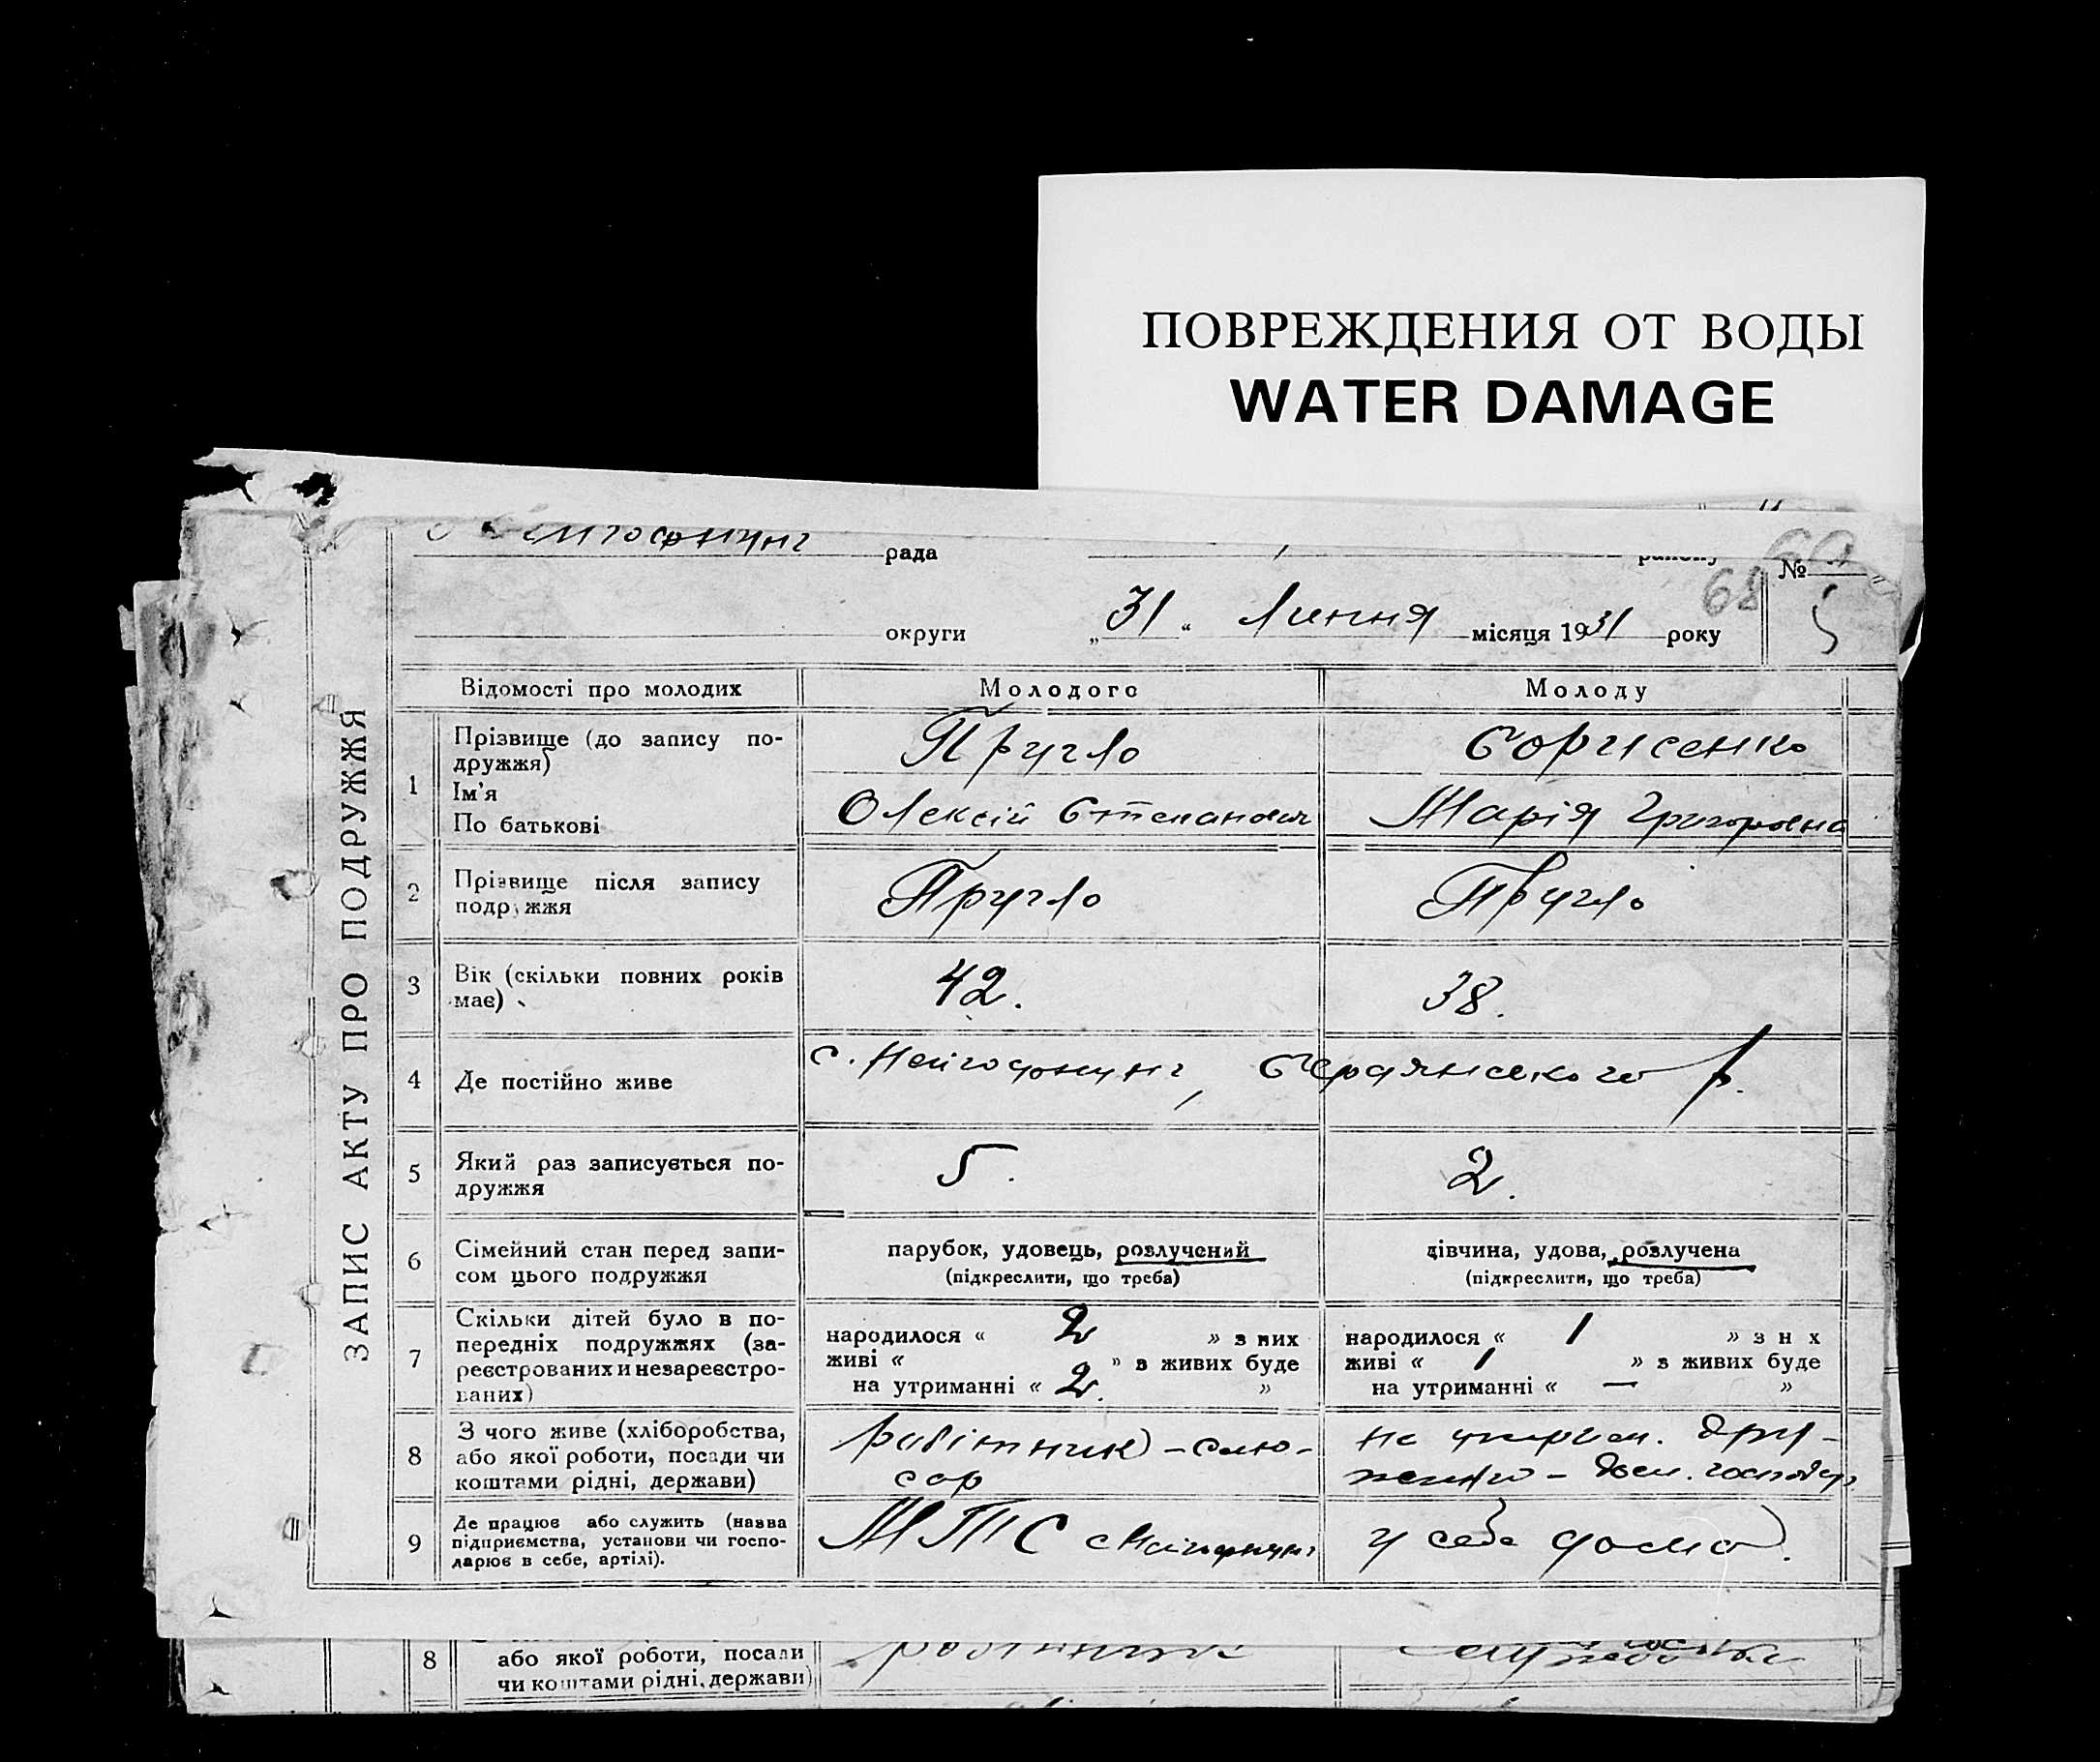 ПОВРЕЖДЕНИЯ ОТ ВОДЫ
WATER DAMAGE
рада району № 69
68
округи „31“ Липня місяця 1931 року 5
ЗАПИС АКТУ ПРО ПОДРУЖЖЯ
Відомості про молодих Молодого Молоду
1 Прізвище (до запису по-
дружжя) Пругло Борисенко
Ім'я
По батькові Олексій Степанович Марія Григоровна
2 Прізвище після запису
подружжя Пругло Пругло
3 Вік (скільки повних років
має) 42. 38.
4 Де постійно живе с. Нейгофнунг, Бердянського р.
5 Який раз записується по-
дружжя 5. 2.
6 Сімейний стан перед запи-
сом цього подружжя
парубок, удовець, розлучений дівчина, удова, розлучена
(підкреслити, що треба) (підкреслити, що треба)
7 Скільки дітей було в по-
передніх подружжях (за-
реєстрованих и незареєстро-
ваних)
народилося « 2 » з них народилося « 1 » з н х
живі « » з живих буде живі « 1 » з живих буде
на утриманні « 2. » на утриманні « — »
8 З чого живе (хліборобства,
або якої роботи, посади чи
коштами рідні, держави)
робітник – слю-
сар
на утрим. дру-
9 Де працює або служить (назва
підприємства, установи чи госпо-
дарює в себе, артілі).
МТС у себе дома.
8 або якої роботи, посади
чи коштами рідні, держави)
робітник